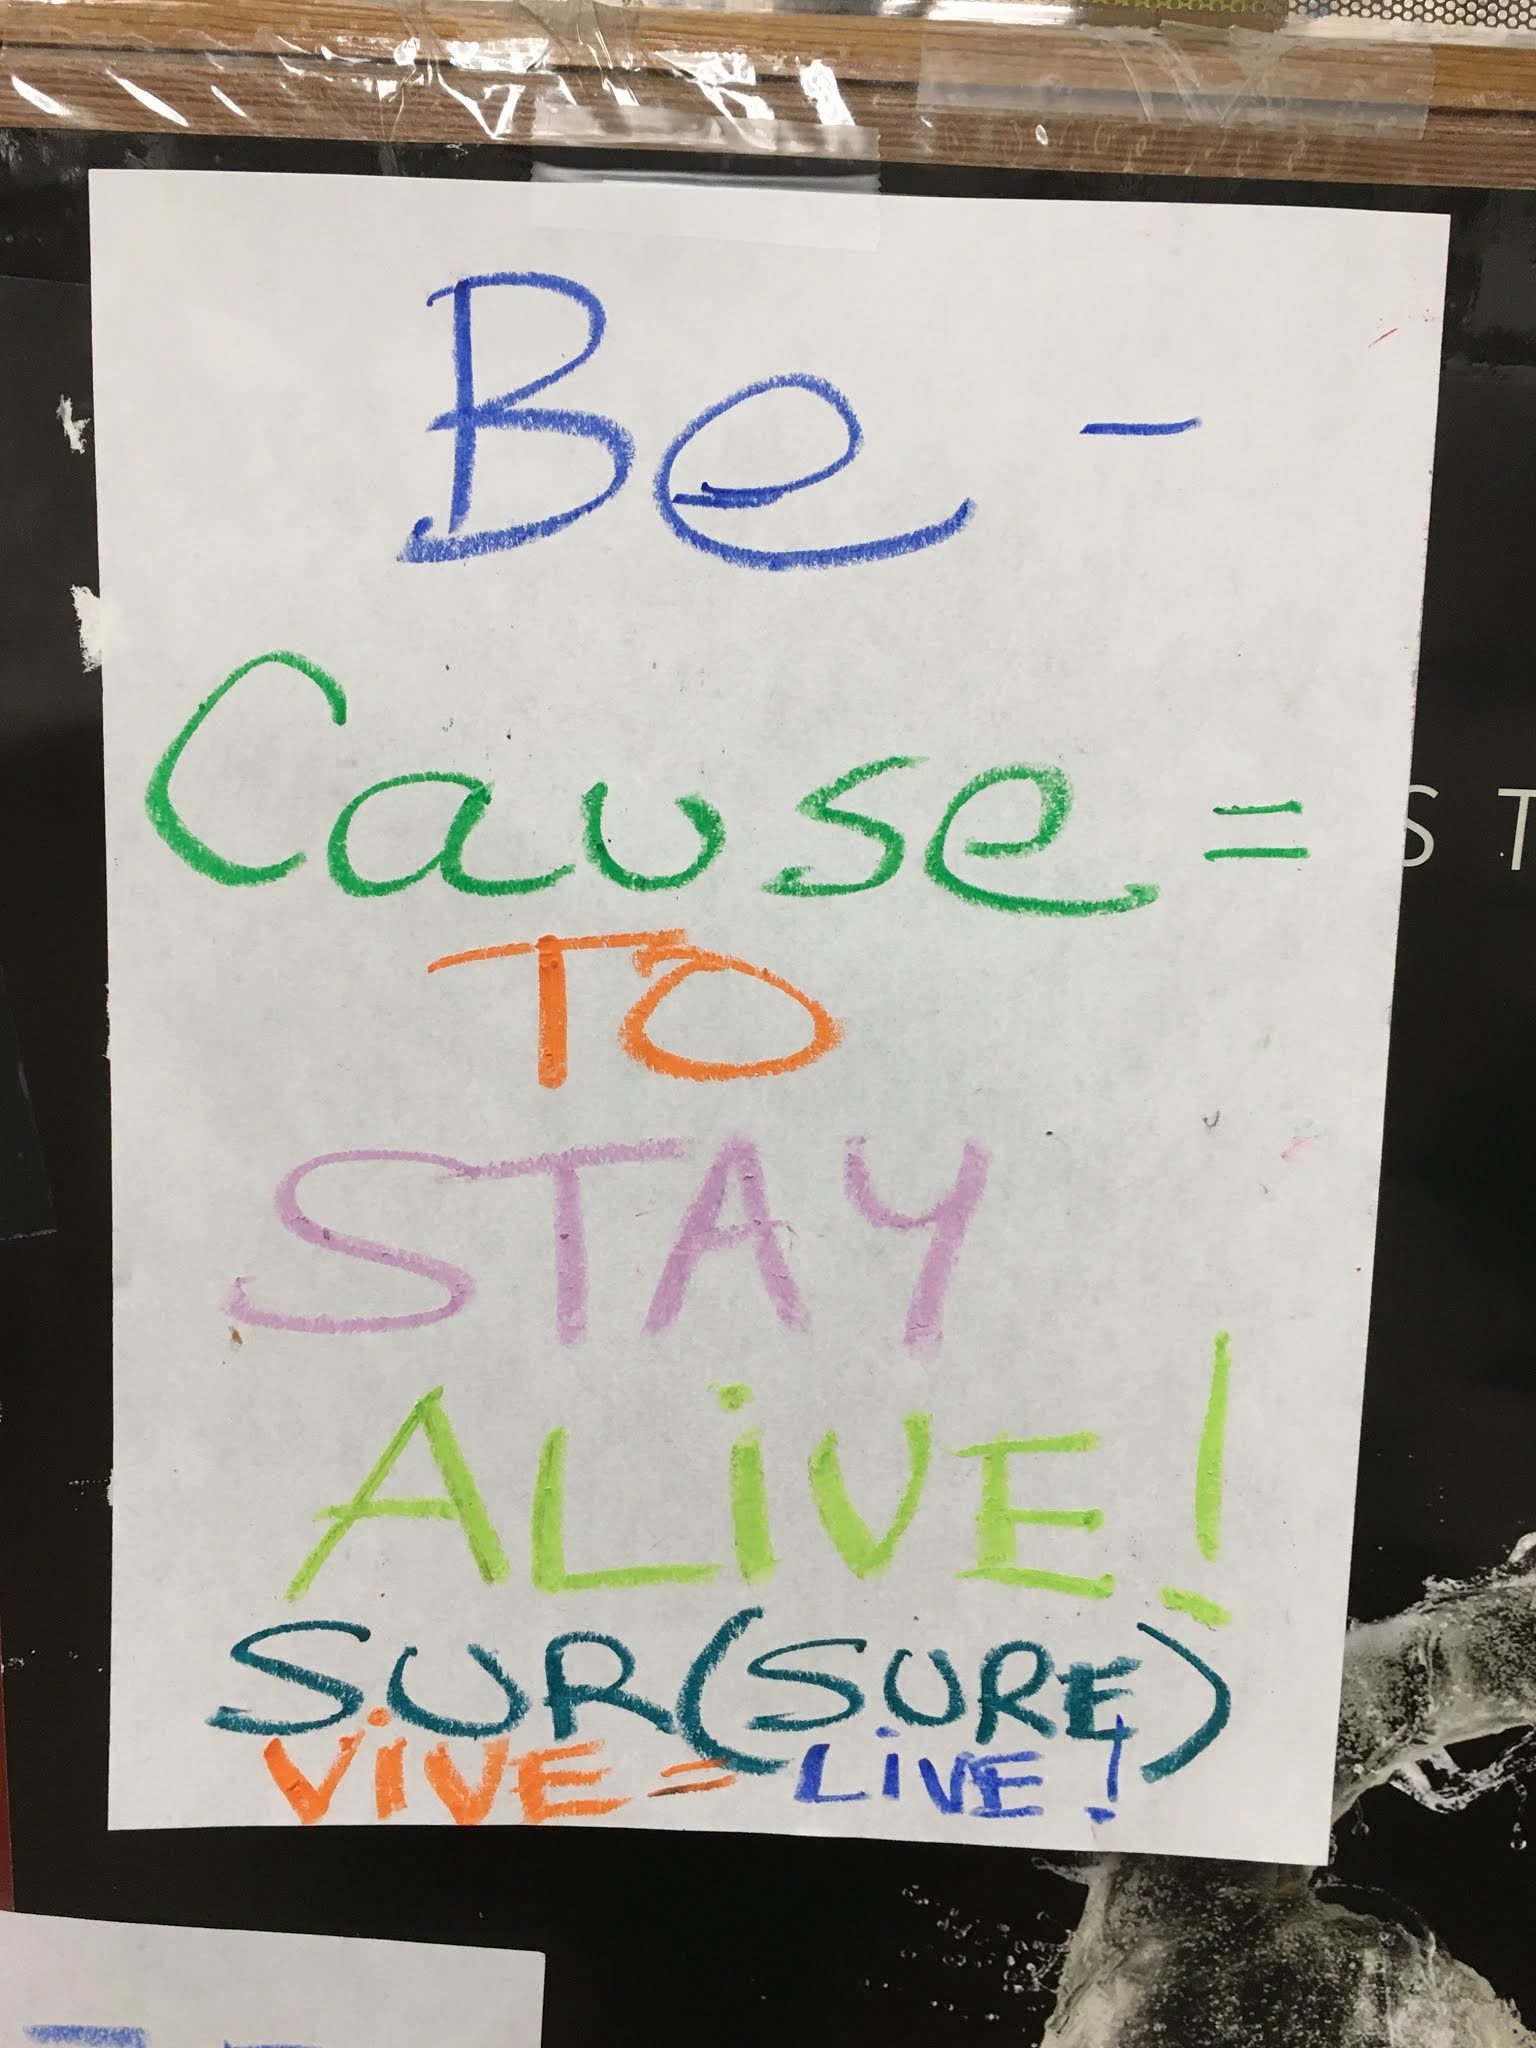 Be -
Cause =
TO
STAY
ALiVE!
SUR (SURE)
ViVE = LiVE!
S T